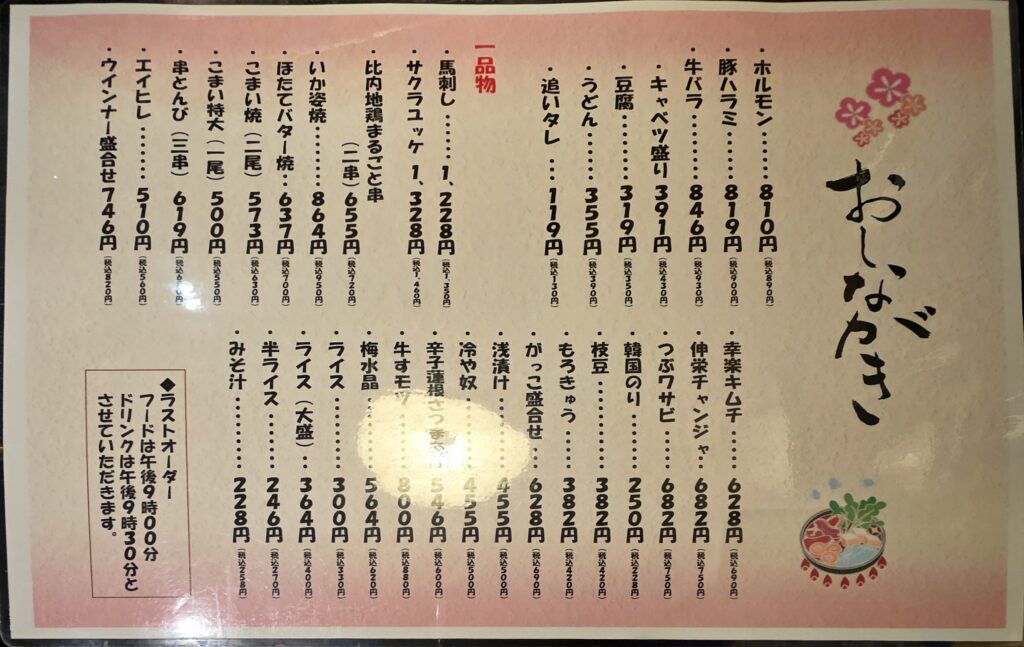 おしながき
・ホルモン……810円(税込890円)
・豚ハラミ……819円(税込900円)
・牛バラ………846円(税込930円)
・キャベツ盛り391円(税込430円)
・豆腐…………319円(税込350円)
・うどん………355円(税込390円)
・追いタレ …119円(税込130円)
一品物
・馬刺し……1,228円(税込1,350円)
・サクラユッケ 1,328円(税込1,460円)
・比内地鶏まるごと串
(二串)655円(税込720円)
・いか姿焼………864円(税込950円)
・ほたてバター焼‥637円(税込700円)
・こまい焼(二尾)573円(税込630円)
・こまい特大(一尾)500円(税込550円)
・串とんび(三串)619円(税込680円)
・エイヒレ ………510円(税込560円)
・ウインナー盛合せ746円(税込820円)
・幸楽キムチ……628円(税込690円)
・伸栄チャンジャ‥682円(税込750円)
・つぶワサビ……682円(税込750円)
・韓国のり………250円(税込228円)
・枝豆……………382円(税込420円)
・もろきゅう……382円(税込420円)
・がっこ盛合せ…628円(税込690円)
・浅漬け…………455円(税込500円)
・冷や奴…………455円(税込500円)
・辛子蓮根さつま 546円(税込600円)
・牛すモツ………800円(税込880円)
・梅水晶…………564円(税込620円)
・ライス…………300円(税込330円)
・ライス(大盛)…364円(税込400円)
・半ライス………246円(税込270円)
・みそ汁…………228円(税込258円)
◆ラストオーダー
フードは午後9時00分
ドリンクは午後9時30分と
させていただきます。